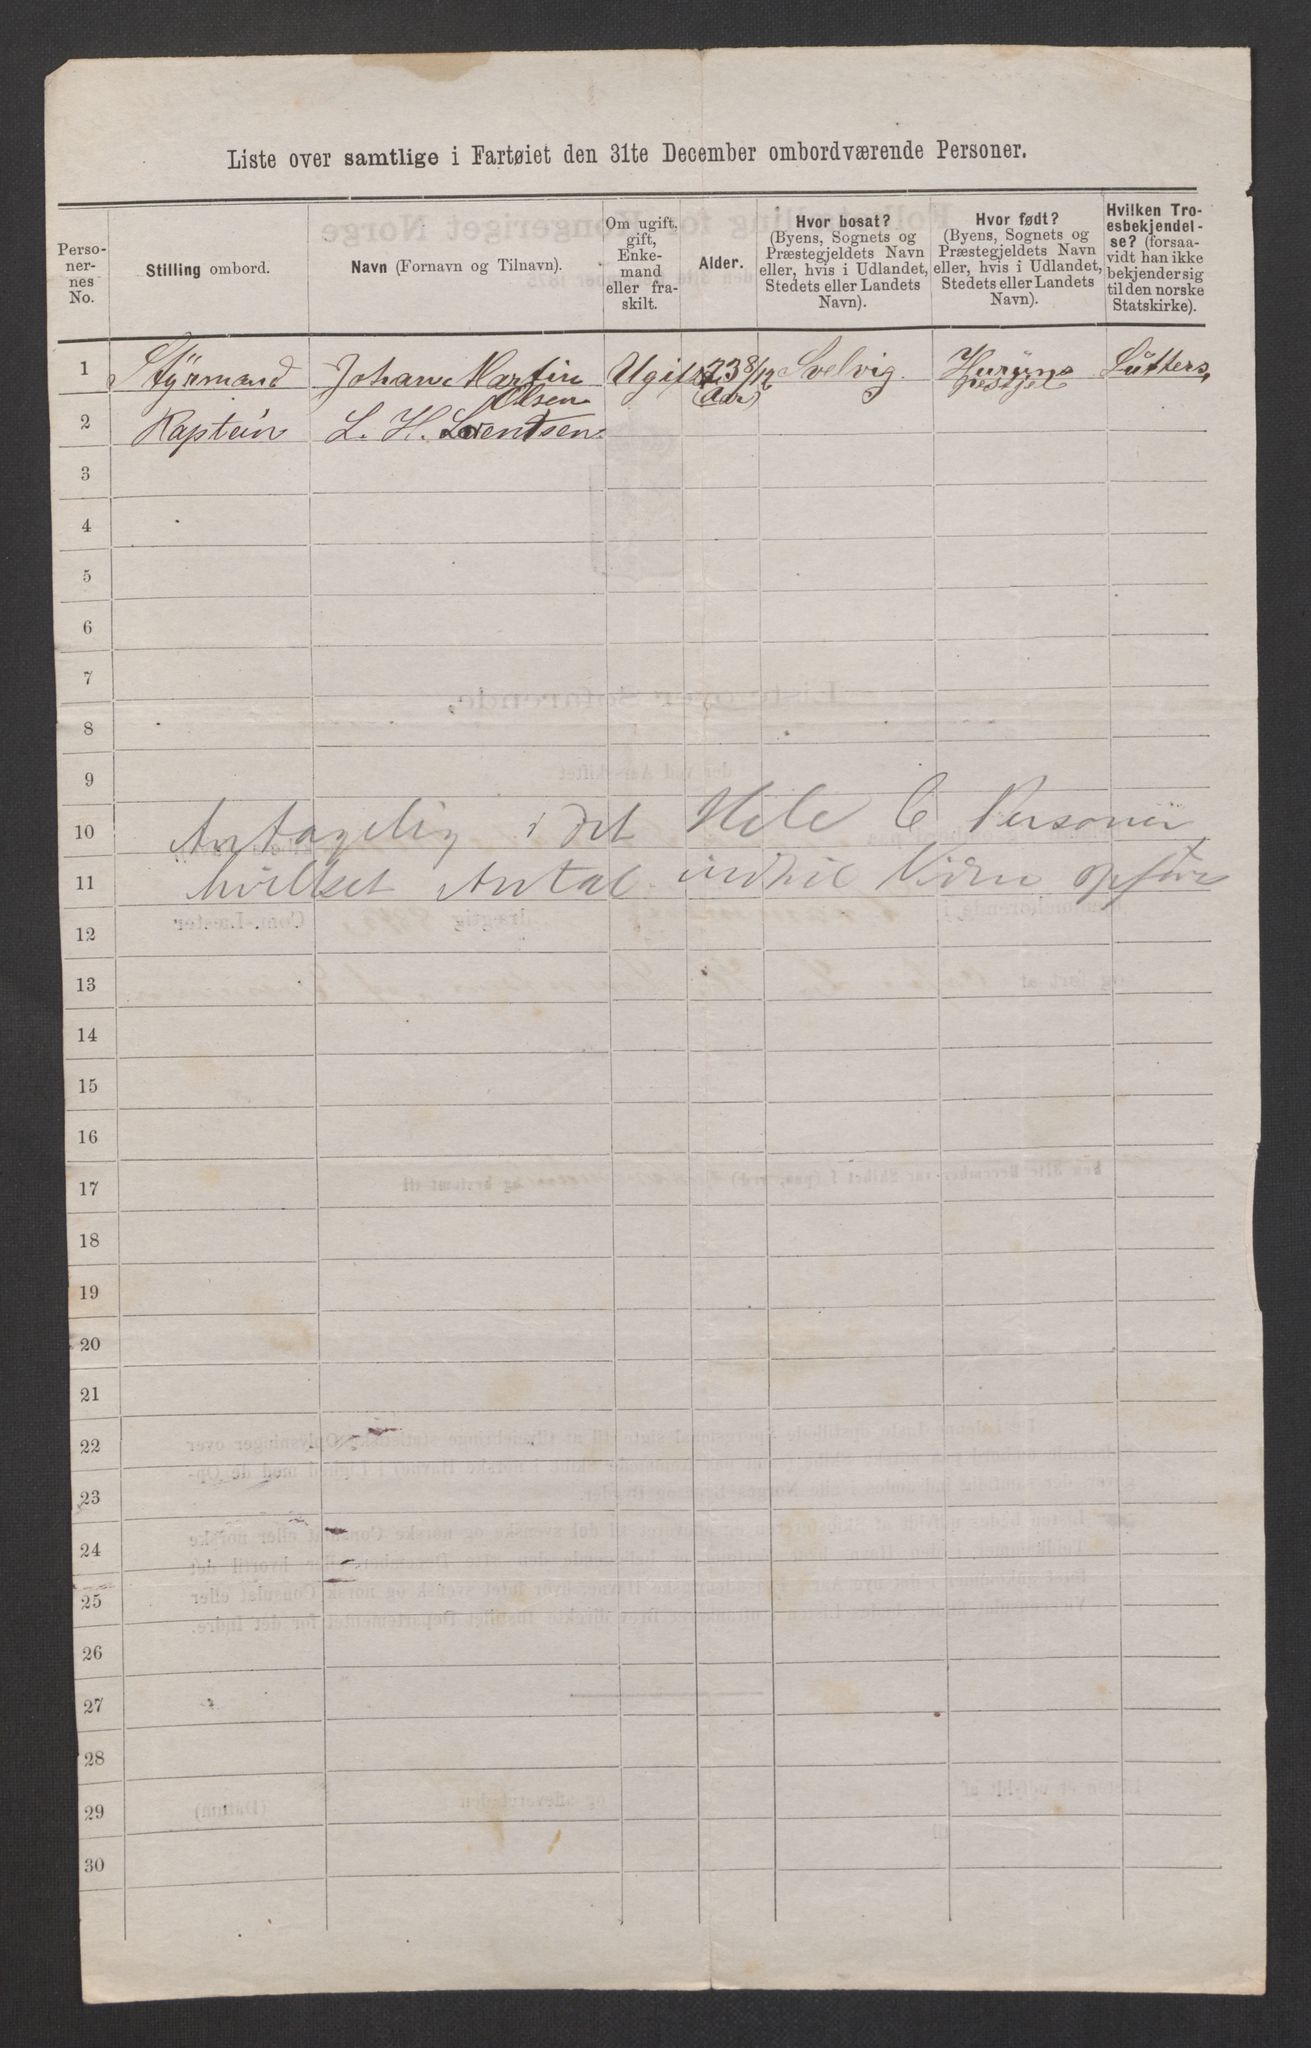 Liste over samtlige i Fartøiet den 31te December ombordværende Personer.
Perso-
ner-
nes
No.
Stilling ombord.
Navn (Fornavn og Tilnavn).
Om ugift,
gift,
Enke-
mand
eller fra-
skilt.
Alder.
Hvor bosat?
(Byens, Sognets og
Præstegjeldets Navn
eller, hvis i Udlandet,
Stedets eller Landets
Navn).
Hvor født?
(Byens, Sognets og
Præstegjeldets Navn
eller, hvis i Udlandet,
Stedets eller Landets
Navn).
Hvilken Tro-
esbekjendel-
se? (forsaa-
vidt han ikke
bekjender sig
til den norske
Statskirke).
1 Styrmand Johan Martin Ugift 23 8/12 Svelvig. Hurums Lutters,
Olsen (Adr) Prestgjel
2 Kaptein L. H. Lorentsen
3
4
5
6
7
8
9
10 Antagelig i det Hele 6 Personer
11 hvilket Antal indtil Videre opføres
12
13
14
15
16
17
18
19
20
21
22
23
24
25
26
27
28
29
30